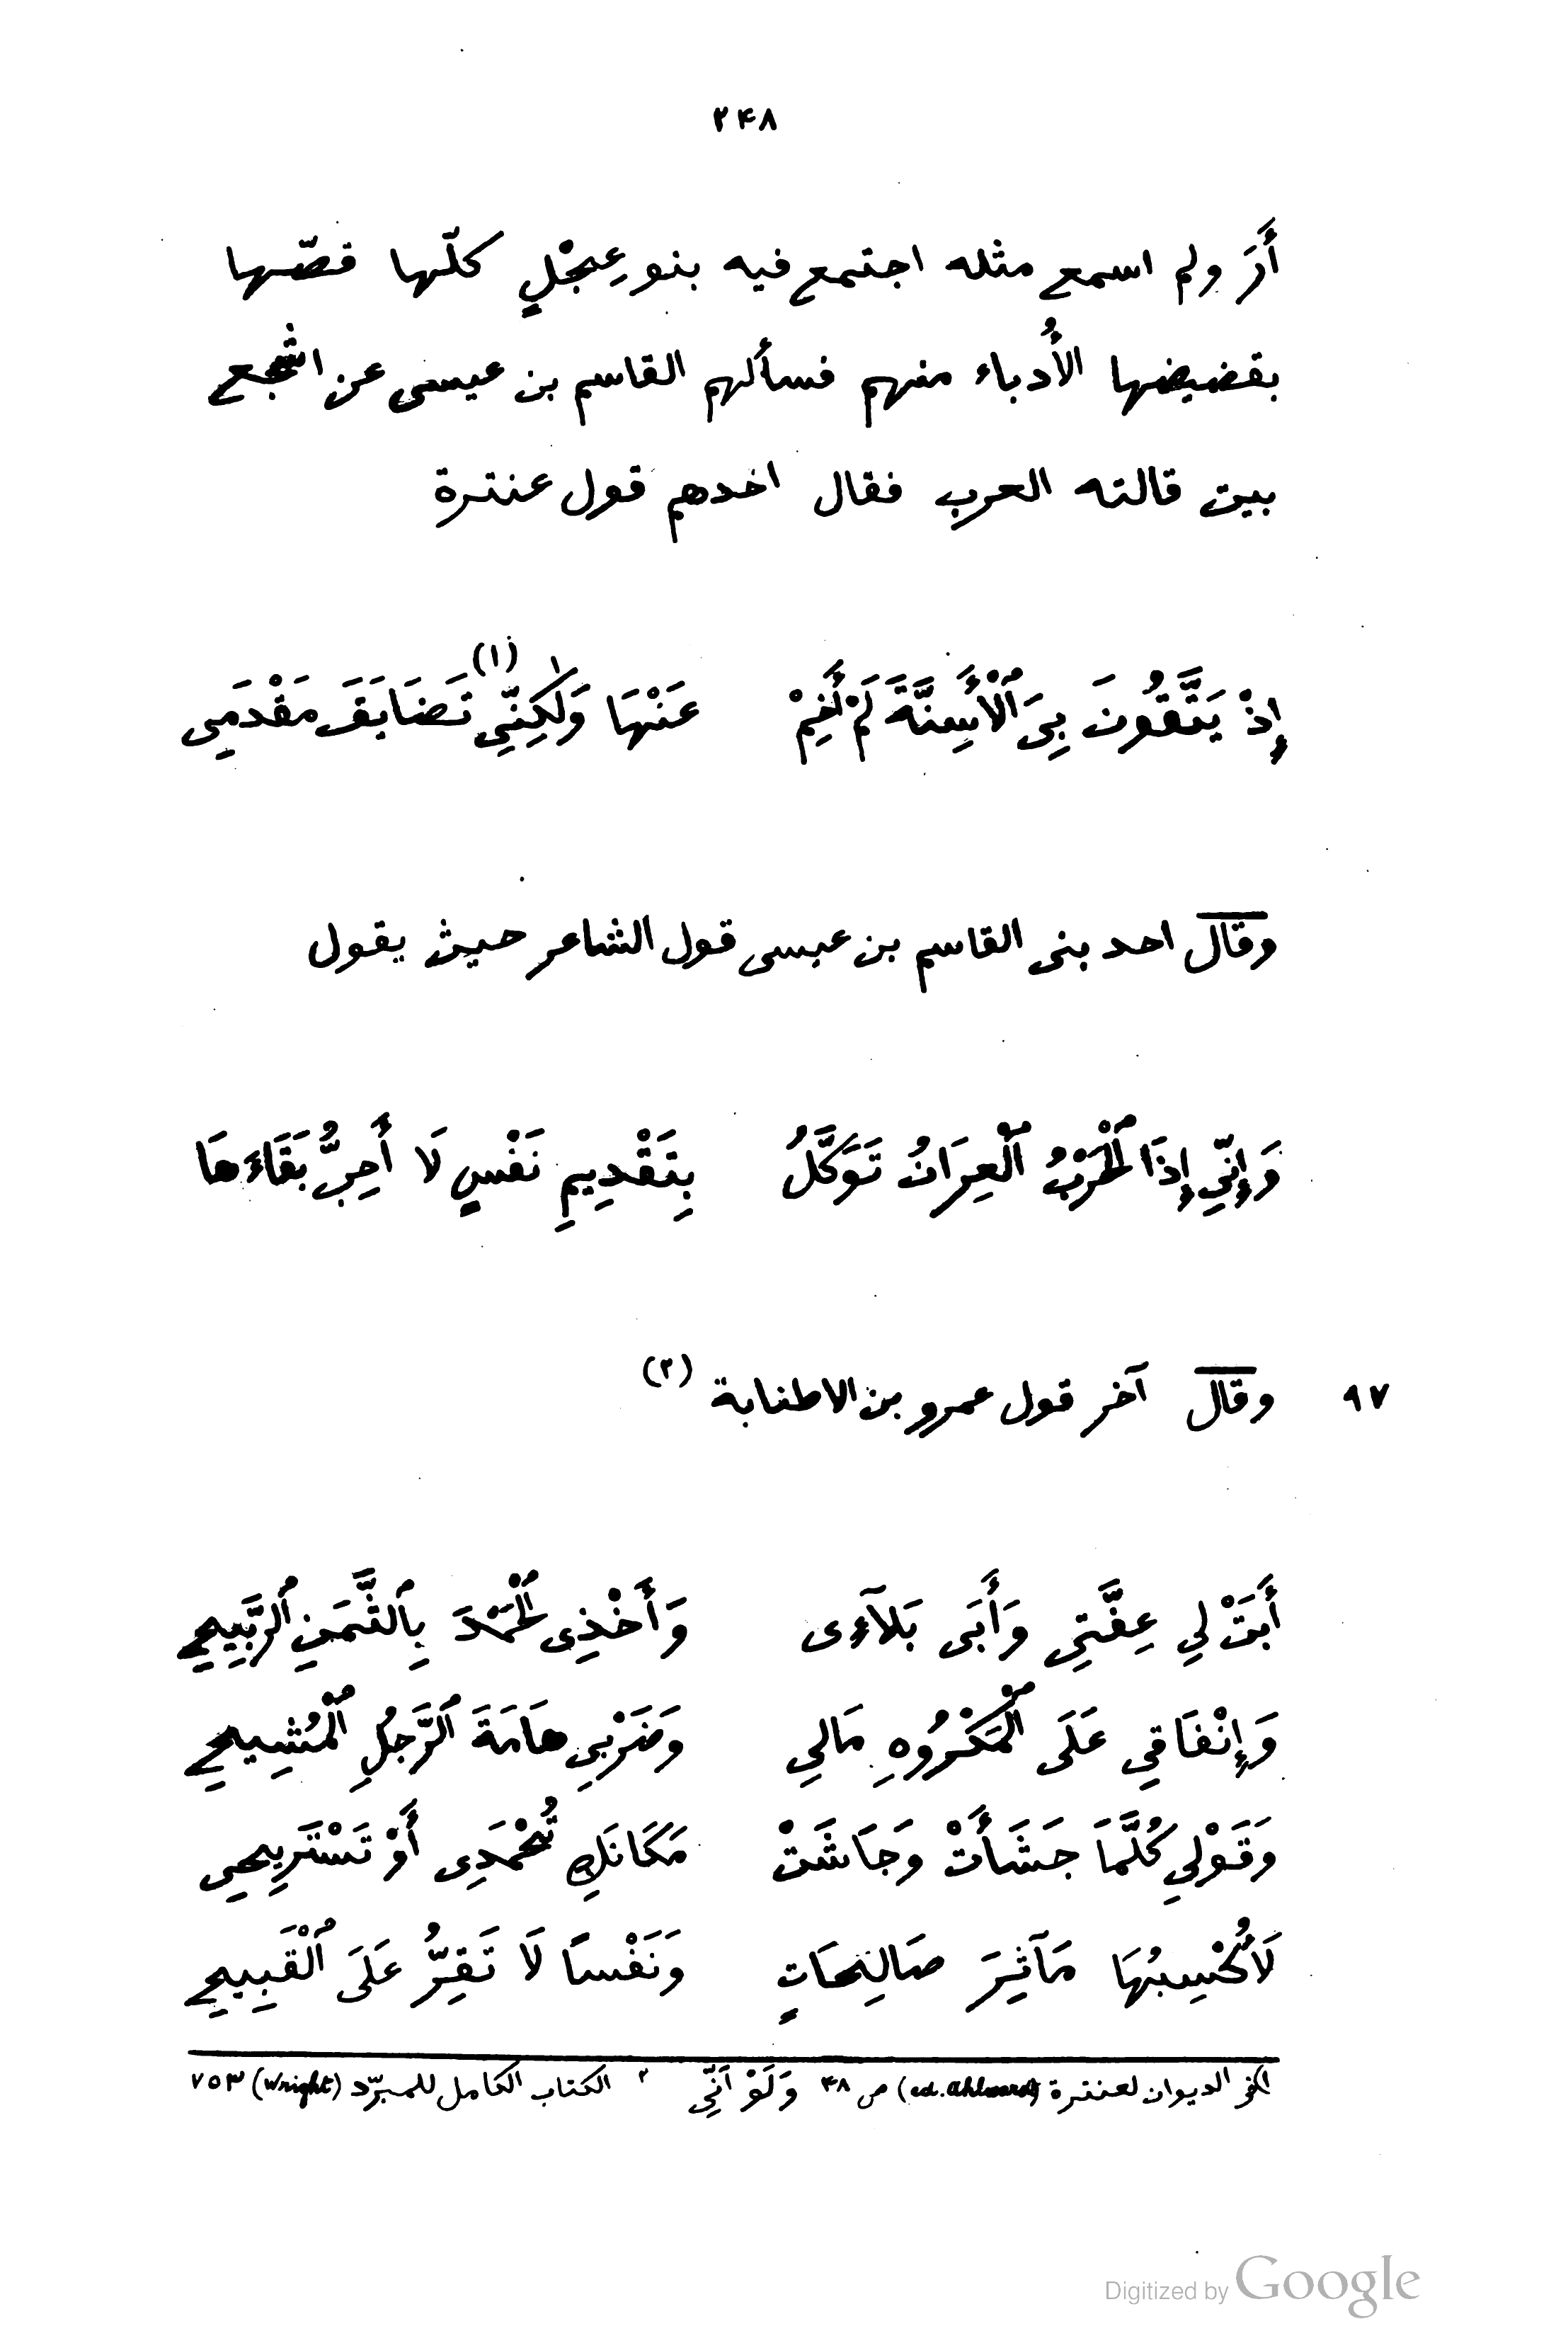 ٢۴٨
أَرَ ولم اسمع مثله اجتمع فيه بنو عِجْلٍ كلّها قضّها
بقضيضها الأُدباء منهم فسألهم القاسم بن عيسى عن اشجع
بيت قالته العرب فقال احدهم قول عنترة
إِذْ يَتَّقُونَ بِىَ ٱلْأَسِنَّةَ لَمْ أَخِمْ عَنْهَا وَلٰكِنِّي (١) تَضَايَقَ مَقْدَمِى
وقال احد بنى القاسم بن عيسى قول الشاعر حيث يقول
وَإِنِّي إِذَا ٱلْحَرْبُ ٱلْعِوَانُ تَوَكَّلُ بِتَقْدِيمِ نَفْسٍ لَا أُحِبُّ بَقَاءَهَا
٩٧ وقال آخر قول عمرو بن الاطنابة (٢)
أَبَتْ لِي عِفَّتِي وَأَبَى بَلآءِى وَأَخْذِى ٱلْحَمْدَ بِٱلثَّمَنِ ٱلرَّبِيحِ
وَإِنْفَاقِي عَلَى ٱلْمَكْرُوهِ مَالِي وَضَرْبِي هَامَةَ ٱلرَّجُلِ ٱلْمُشِيحِ
وَقَوْلِي كُلَّمَا جَشَأَتْ وَجَاشَتْ مَكَانَكِ تُحْمَدِى أَوْ تَسْتَرِيحِى
لَأُكْسِبُهَا مَآثِرَ صَالِحَاتٍ وَنَفْسًا لَا تَقِرُّ عَلَى ٱلْقَبِيحِ
١ فى الديوان لعنترة (ed. Ahlwardt) ص ۴٨ وَلَوْ أَنِّي ٢ الكتاب الكامل للمبرّد (Wright) ٧٥٣
Digitized by Google